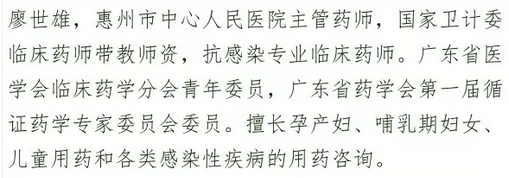 廖世雄，惠州市中心人民医院主管药师，国家卫计委
临床药师带教师资，抗感染专业临床药师。广东省医
学会临床药学分会青年委员，广东省药学会第一届循
证药学专家委员会委员。擅长孕产妇、哺乳期妇女、
儿童用药和各类感染性疾病的用药咨询。